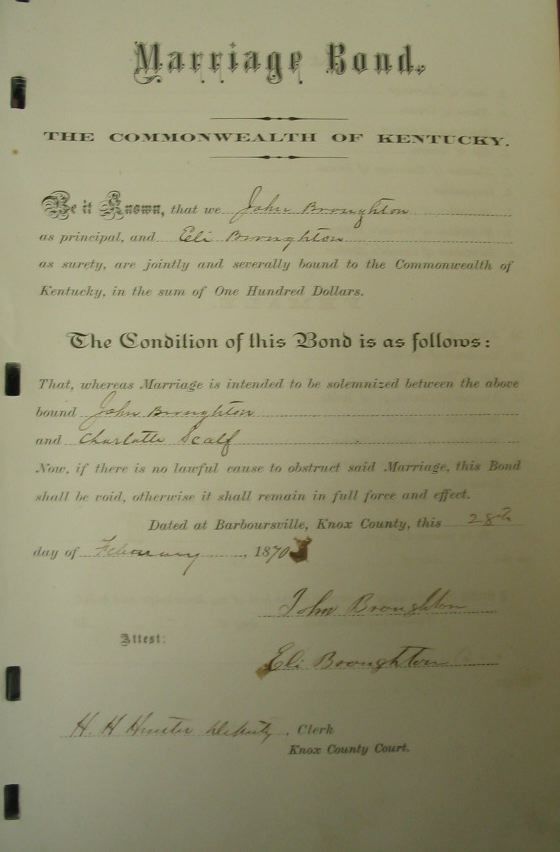 Marriage Bond.
THE COMMONWEALTH OF KENTUCKY.
Be it Known, that we John Broughton
as principal, and Eli Broughton
as surety, are jointly and severally bound to the Commonwealth of
Kentucky, in the sum of One Hundred Dollars.
The Condition of this Bond is as follows:
That, whereas Marriage is intended to be solemnized between the above
bound John Broughton
and Charlotte Scalf
Now, if there is no lawful cause to obstruct said Marriage, this Bond
shall be void, otherwise it shall remain in full force and effect.
Dated at Barboursville, Knox County, this 28th
day of February, 1870
John Broughton
Attest:
Eli Broughton
H. H Hunter Deputy, Clerk
Knox County Court.